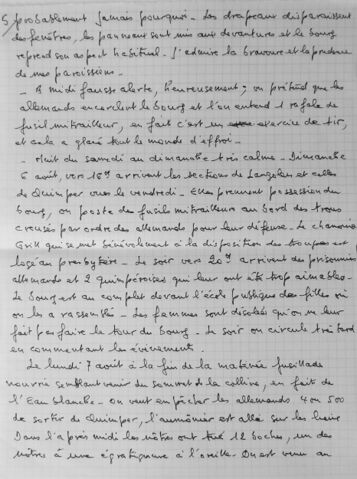 5/ probablement jamais pourquoi - Les drapeaux disparaissent
des fenêtres, les panneaux sont mis aux devantures et le bourg
reprend son aspect habituel - J'admire la bravoure et la prudence
de mes paroissiens -
- A midi fausse alerte, heureusement ; on prétend que les
allemands encerclent le bourg et l'on entend 1 rafale de
fusil mitrailleur, en fait c'est un exercice de tir,
et cela a glacé tout le monde d'effroi -
- Nuit du samedi au dimanche très calme - Dimanche
6 août, vers 16h arrivent les sections de Langolen et celles
de Quimper vers le vendredi - Elles prennent possession du
bourg, on poste des fusils mitrailleurs au bord des trous
creusés par ordre des allemands pour leur défense - Le chanoine
Grill qui se met bénévolement à la disposition des troupes est
logé au presbytère - Le soir vers 20h arrivent des prisonniers
allemands et 2 quimpéroises qui leur ont été trop aimables -
Le bourg est au complet devant l'école publique des filles où
on les a rassemblés - Les femmes sont désolées qu'on ne leur
fait pas faire le tour du bourg - Le soir on circule très tard
en commentant les événements.
Le lundi 7 août à la fin de la matinée fusillade
nourrie semblant venir du sommet de la colline, en fait de
l'Eau blanche - On veut empêcher les allemands 4 ou 500
de sortir de Quimper, l'aumônier est allé sur les lieux
Dans l'après midi les nôtres ont tué 12 boches, un des
nôtres a une égratignure à l'oreille - On est venu au